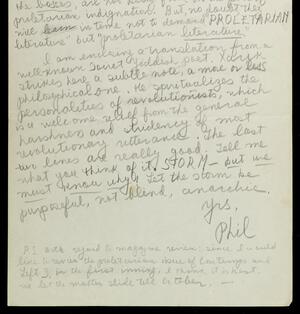 the boxes, are not
proletarian indignation. But no doubt they
will be in time not to demand PROLETARIAN
literature" but "proletarian literature"
I am enclosing a translation from a
well-known Soviet Yiddish poet,
strikes here a subtle note, a more or less
philosophical one. He spiritualizes the
personalities of revolutionists, which
is a welcome relief from the general
harshness and stridency of most
revolutionary utterance. The last
two lines are really good. Tell me
what you think of it, STORM — but we
must know why! Let the storm be
purposeful, not blind, anarchic.
Yrs,
Phil
P.S. With regard to magazine review: since I would
like to review the proletarian issue of Contempo and
Left 3, for the first inning, I think it is best
we let the matter slide till October. —